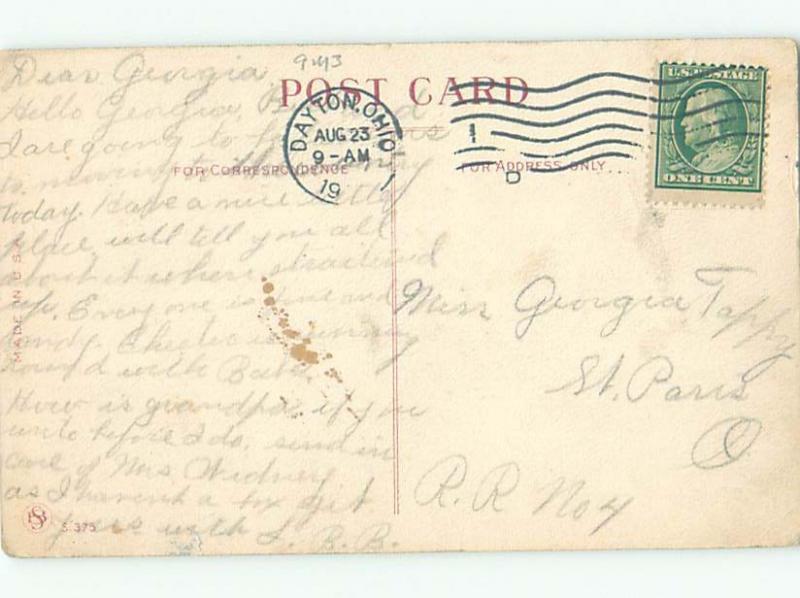 943
POST CARD
DAYTON, OHIO
AUG 23
9-AM
19
1
D
U.S. POSTAGE
ONE CENT
FOR CORRESPONDENCE
FOR ADDRESS ONLY
MADE IN U.S.A.
Dear Georgia
Hello Georgia,
I are going to
to moving
today. Have a nice little
place will tell you all
about it when straitened
up. Every one is fine and
dandy. is running
round with
How is grandpa if you
write before I do, send in
care of Mrs. Widney
as I havent a box yet
yours with L. B. B.
Miss Georgia Tappy
St. Paris
O
R.R No 4
S. 375